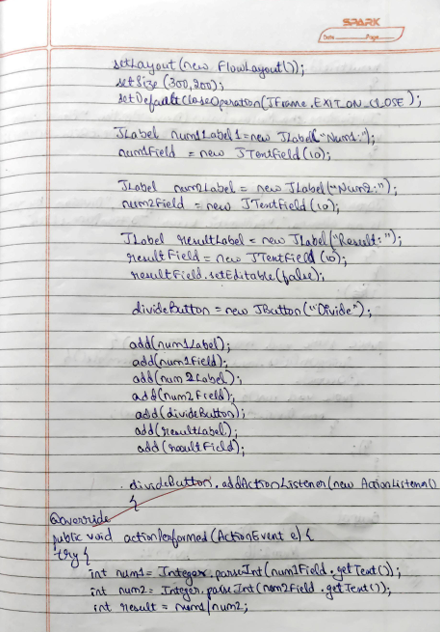 SPARK
Date Page
setLayout(new FlowLayout());
setSize (300,200);
setDefaultCloseOperation(JFrame.EXIT_ON_CLOSE);
JLabel num1Label1=new JLabel("Num1:");
num1Field = new JTextField(10);
JLabel num2Label = new JLabel("Num2:");
num2Field = new JTextField(10);
JLabel resultLabel = new JLabel("Result:");
resultField = new JTextField(10);
resultField.setEditable(false);
divideButton = new JButton("Divide");
add(num1Label);
add(num1Field);
add(num2Label);
add(num2Field);
add(divideButton);
add(resultLabel);
add(resultField);
divideButton.addActionListener(new ActionListener()
{
@override
public void actionPerformed (ActionEvent e) {
try {
int num1= Integer.parseInt(num1Field.getText());
int num2= Integer.parseInt(num2Field.getText());
int result = num1/num2;